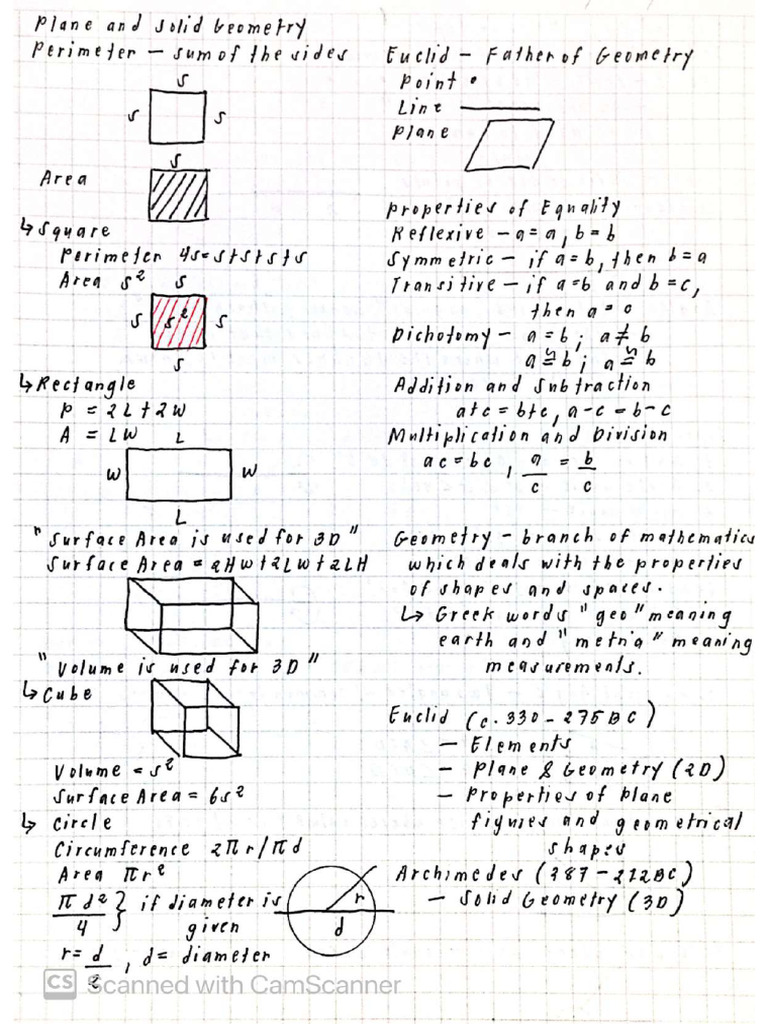 Plane and Solid Geometry
Perimeter — sum of the sides
s
s s
s
Area
↳ Square
Perimeter 4s=s+s+s+s
Area s²
s
s s² s
s
↳ Rectangle
P = 2L+2W
A = LW
L
W W
L
"Surface Area is used for 3D"
Surface Area = 2HW+2LW+2LH
"Volume is used for 3D"
↳ Cube
Volume = s²
Surface Area = 6s²
↳ Circle
Circumference 2πr/πd
Area πr²
πd²/4 } if diameter is given
r = d/2, d = diameter
r
d
Euclid — Father of Geometry
Point •
Line
Plane
Properties of Equality
Reflexive — a=a, b=b
Symmetric — if a=b, then b=a
Transitive — if a=b and b=c,
then a=c
Dichotomy — a=b; a≠b
a≌b; a≌b
Addition and Subtraction
a+c = b+c, a-c = b-c
Multiplication and Division
ac=bc, a/c = b/c
Geometry — branch of mathematics
which deals with the properties
of shapes and spaces.
↳ Greek words "geo" meaning
earth and "metria" meaning
measurements.
Euclid (c. 330 - 275BC)
— Elements
— Plane & Geometry (2D)
— Properties of plane
figures and geometrical
shapes
Archimedes (287 - 212BC)
— Solid Geometry (3D)
CS Scanned with CamScanner